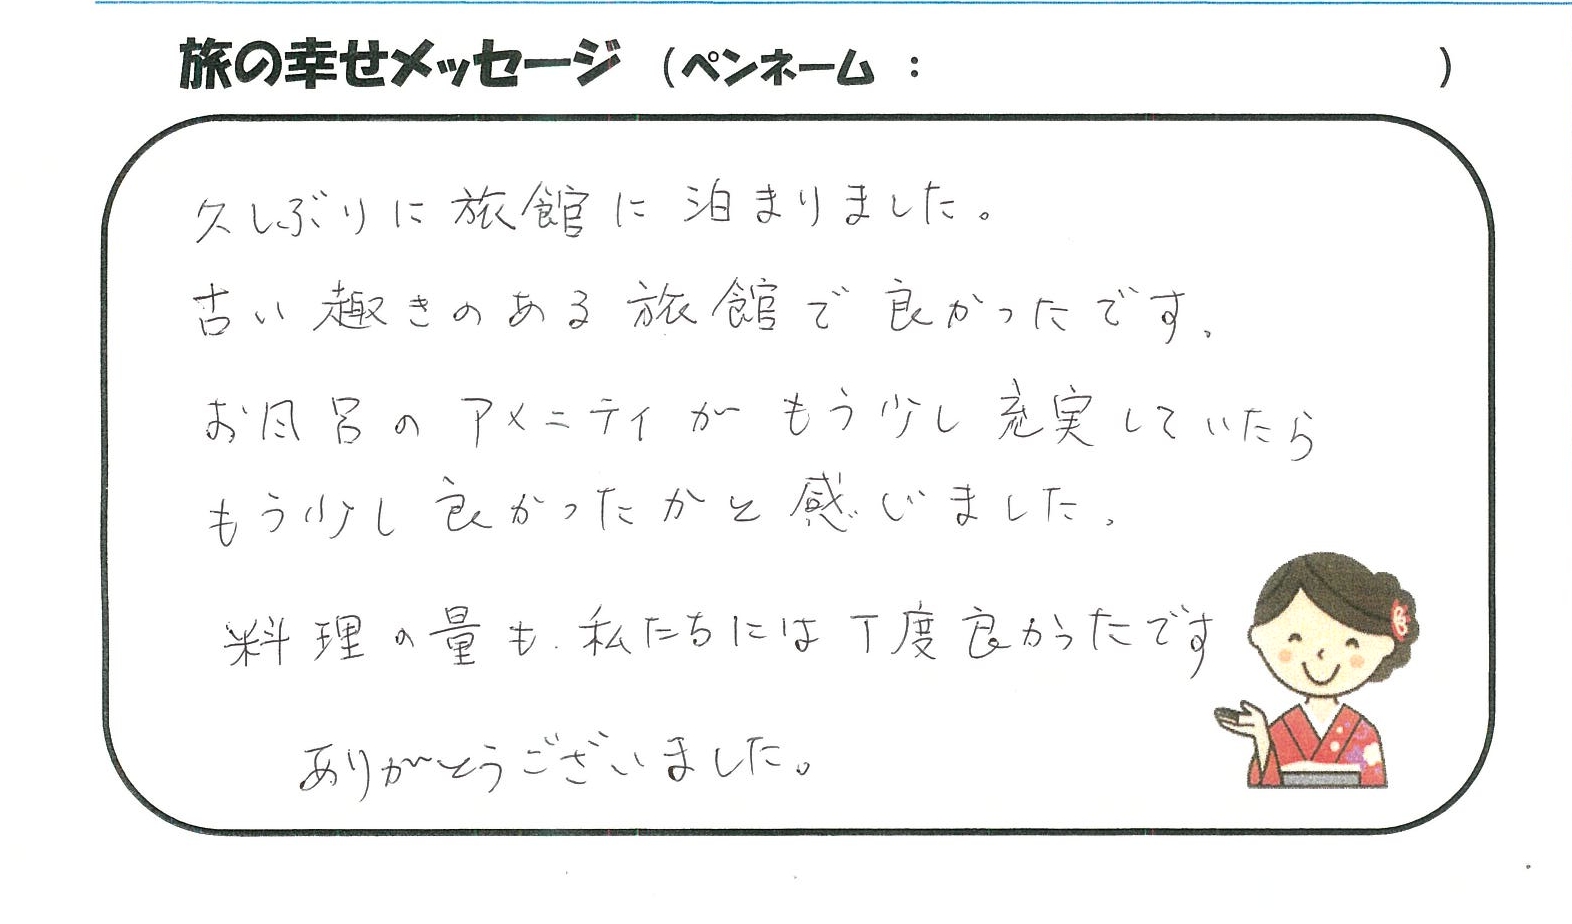 旅の幸せメッセージ （ペンネーム ： ）
久しぶりに旅館に泊まりました。
古い趣きのある旅館で良かったです。
お風呂のアメニティがもう少し充実していたら
もう少し良かったかと感じました。
料理の量も、私たちには丁度良かったです
ありがとうございました。